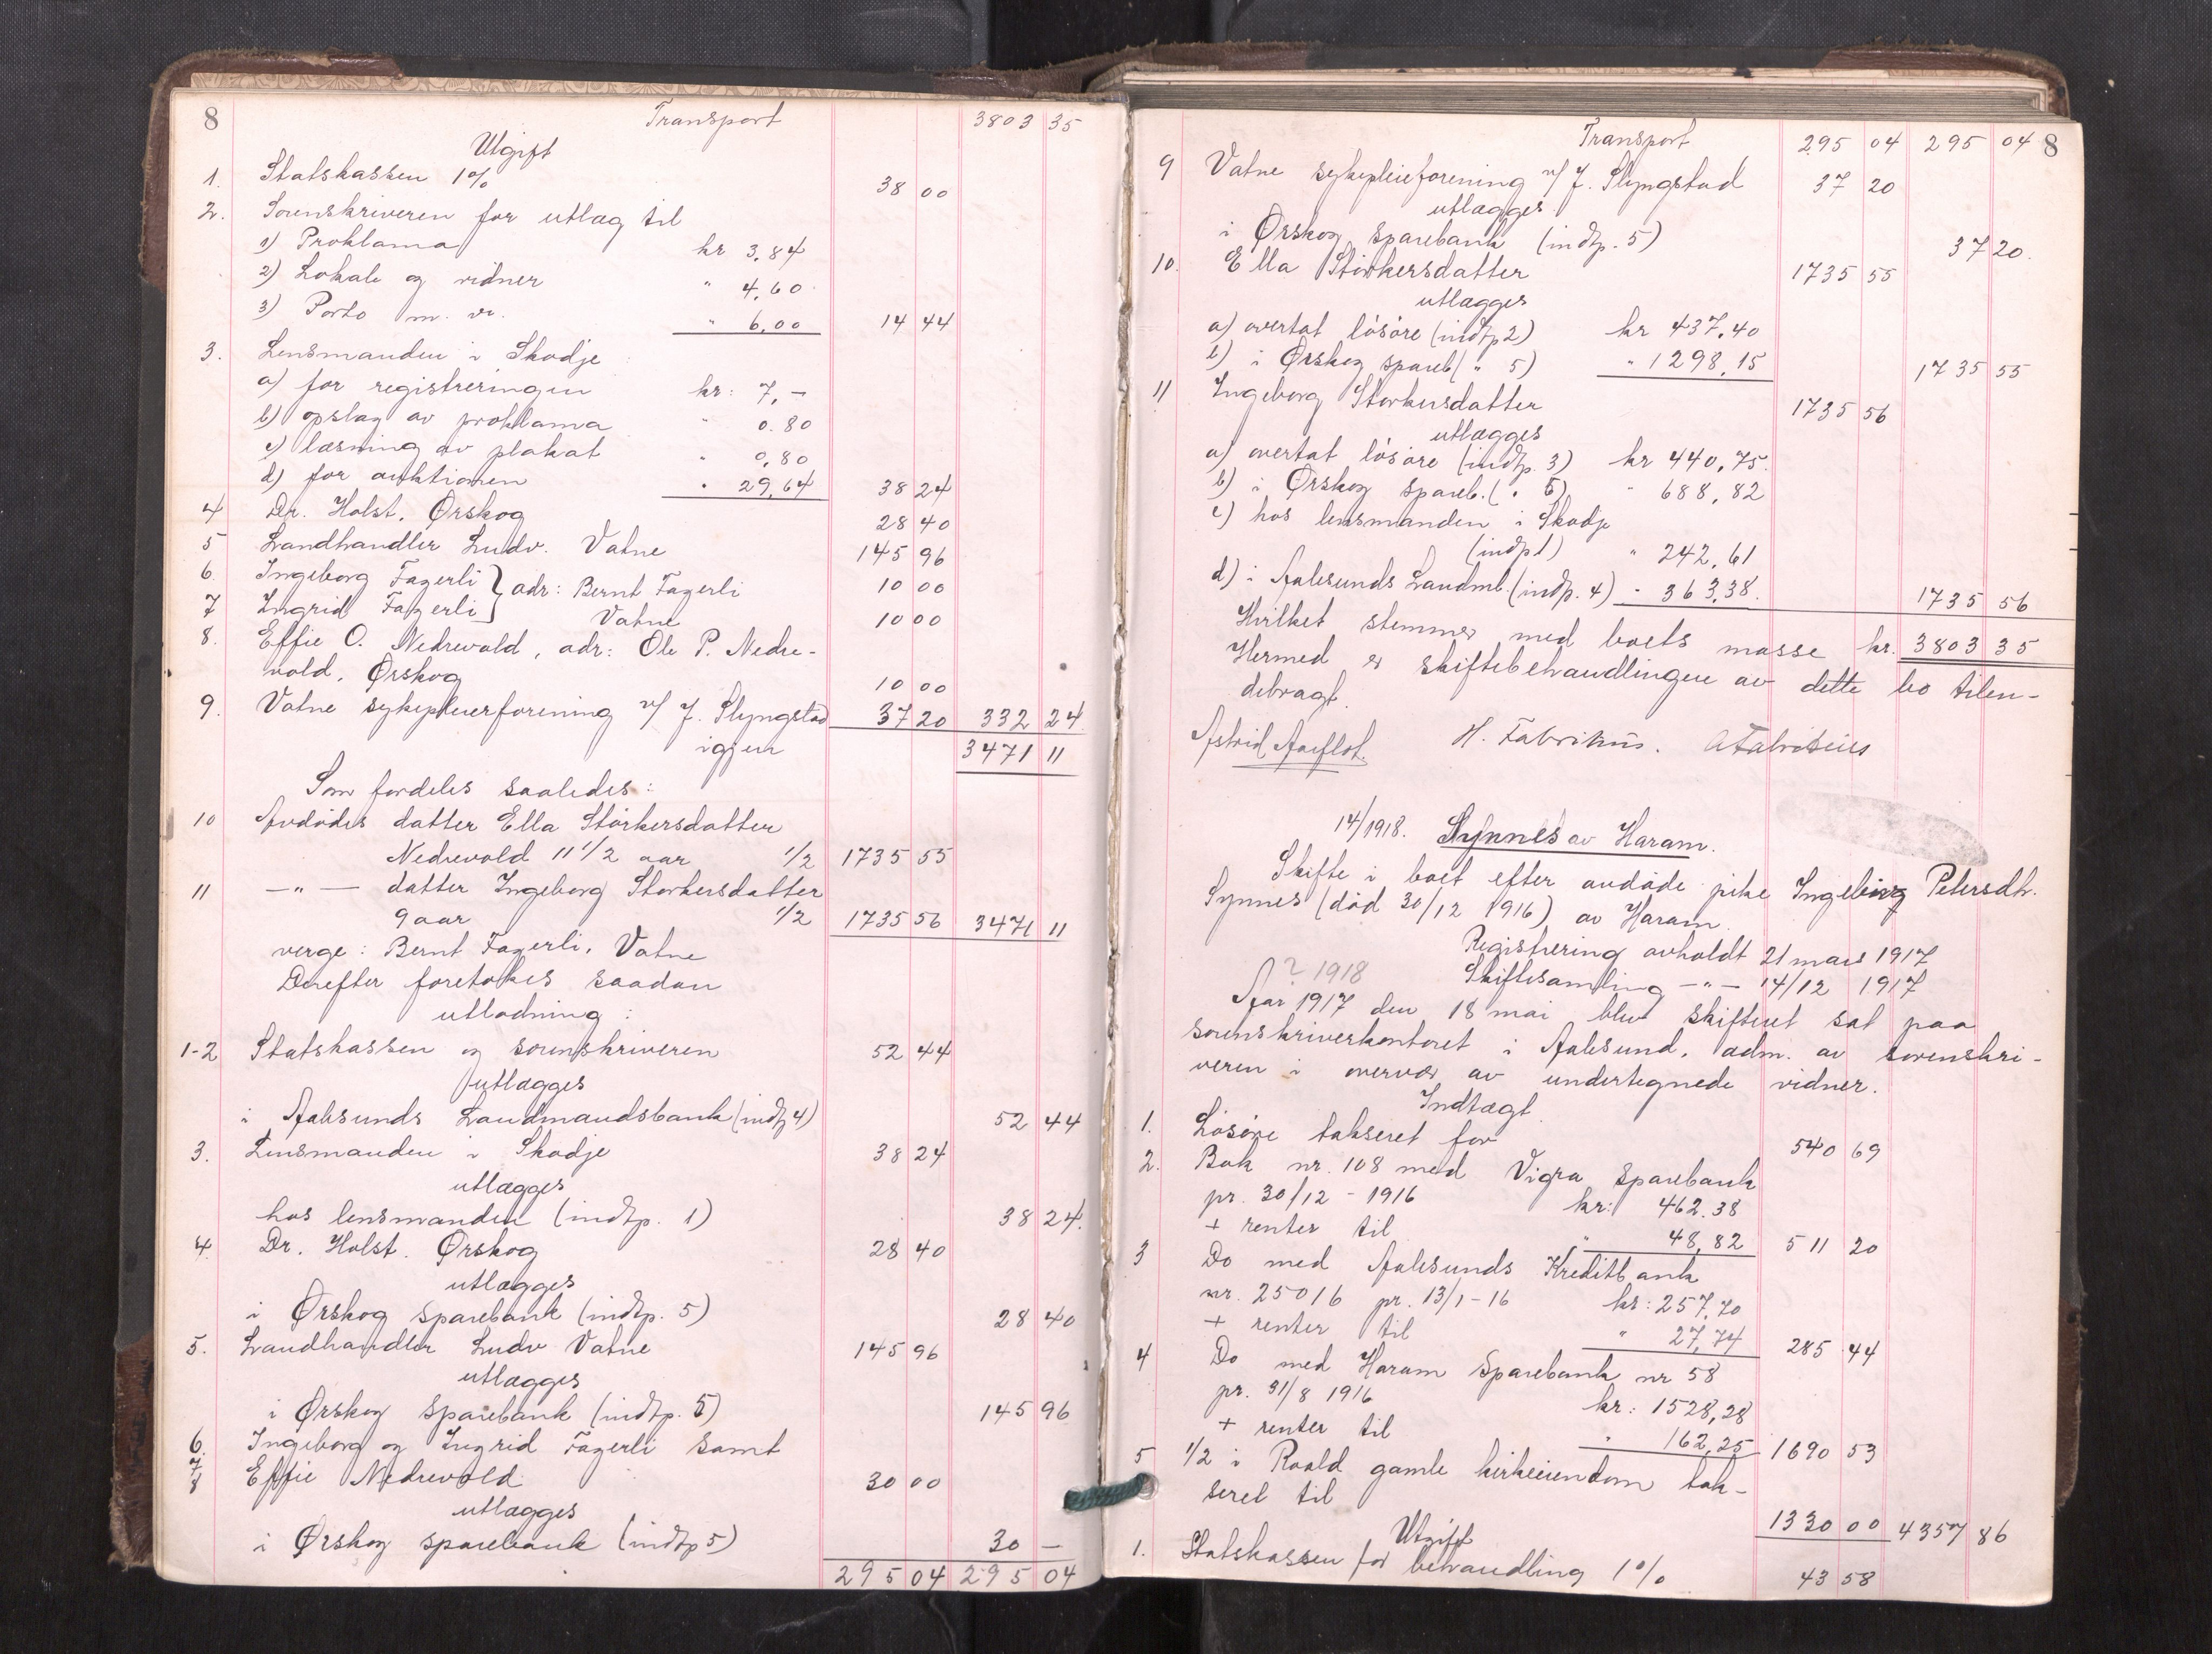 8 Transport 3803 35
Utgift
1. Statskassen 1% 38 00
2. Sorenskriveren for utlæg til
1) Proklama kr 3,84
2) Lokale og vidner " 4,60
3) Porto m. v. " 6,00 14 44
3. Lensmanden i Skodje
a) for registreringen kr: 7,-
b) opslag av proklama " 0.80
c) læsning av plakat " 0,80
d) for auktionen " 29,64 38 24
4 Dr. Holst, Ørskog 28 40
5 Landhandler Ludv. Vatne 145 96
6. Ingeborg Fagerli } adr: Bernt Fagerli 10 00
7 Ingrid Fagerli } Vatne 10 00
8. Effie O. Nedrevold, adr: Ole P. Nedre-
vold, Ørskog 10 00
9. Vatne sykepleierforening v/ J. Slyngstad 37 20 332 24
igjen 3471 11
Som fordeles saaledes:
10 Avdødes datter Ella Störkersdatter
Nedrevold 11 1/2 aar 1/2 1735 55
11 —"— datter Ingeborg Storkersdatter
9 aar 1/2 1735 56 3471 11
verge: Bernt Fagerli, Vatne
Derefter foretokes saadan
utlodning:
1-2 Statskassen og sorenskriveren 52 44
utlægges
i Aalesunds Landmandsbank (indtp 4) 52 44
3. Lensmanden i Skodje 38 24
utlægges
hos lensmanden (indtp. 1) 38 24.
4. Dr. Holst. Ørskog 28 40
utlægges
i Ørskog Sparebank (indtp. 5) 28 40
5. Landhandler Ludv Vatne 145 96
utlægges
i Ørskog Sparebank (indtp. 5) 145 96
6. Ingeborg og Ingrid Fagerli samt
7
8 Effie Nedrevold 30 00
utlægges
i Ørskog sparebank (indtp 5) 30 —
295 04 295 04
Transport 295 04 295 04 8
9 Vatne sykepleieforening v/ J. Slyngstad 37 20
utlægges
i Ørskog Sparebank (indtp. 5) 37 20.
10. Ella Störkersdatter 1735 55
utlægges
a) overtat lösöre (indtp 2) kr 437,40
b) i Ørskog spareb ( " 5) " 1298,15 1735 55
11 Ingeborg Storkersdatter 1735 56
utlægges
a) overtat lösöre (indtp. 3) kr 440,75.
b) i Ørskog Spareb. ( " 5) " 688,82
c) hos lensmanden i Skodje
(indtp 1) " 242,61
d) i Aalesunds Landmb. (indtp. 4) " 363,38. 1735 56
Hvilket stemmer med boets masse kr. 3803 35
Hermed er skiftebehandlingen av dette bo tilen-
debragt.
Astrid Aarflot. H. Fabritius. A Fabritius
14/1918. Synnes av Haram.
Skifte i boet efter avdöde pike Ingeborg Petersdtr.
Synnes (död 30/12 1916) av Haram.
Registrering avholdt 21 mars 1917
? 1918 Skiftesamling —"— 14/12 1917
Aar 1917 den 18 mai blev skifteret sat paa
sorenskriverkontoret i Aalesund, adm. av sorenskri-
veren i overvær av undertegnede vidner.
Indtægt
1. Lösöre takseret for 540 69
2. Bok nr. 108 med Vigra Sparebank
pr. 30/12 - 1916 kr: 462.38
+ renter til " 48,82 511 20
3 Do med Aalesunds Kreditbank
nr. 25016 pr. 13/1-16 kr: 257,70
+ renter til " 27,74 285 44
4 Do med Haram Sparebank nr 58
pr. 31/8 1916 kr: 1528,28
+ renter til " 162,25 1690 53
5 1/2 i Roald gamle kirkeeiendom tak-
seret til 1330 00 4357 86
Utgift
1. Statskassen for behandling 1% 43 58